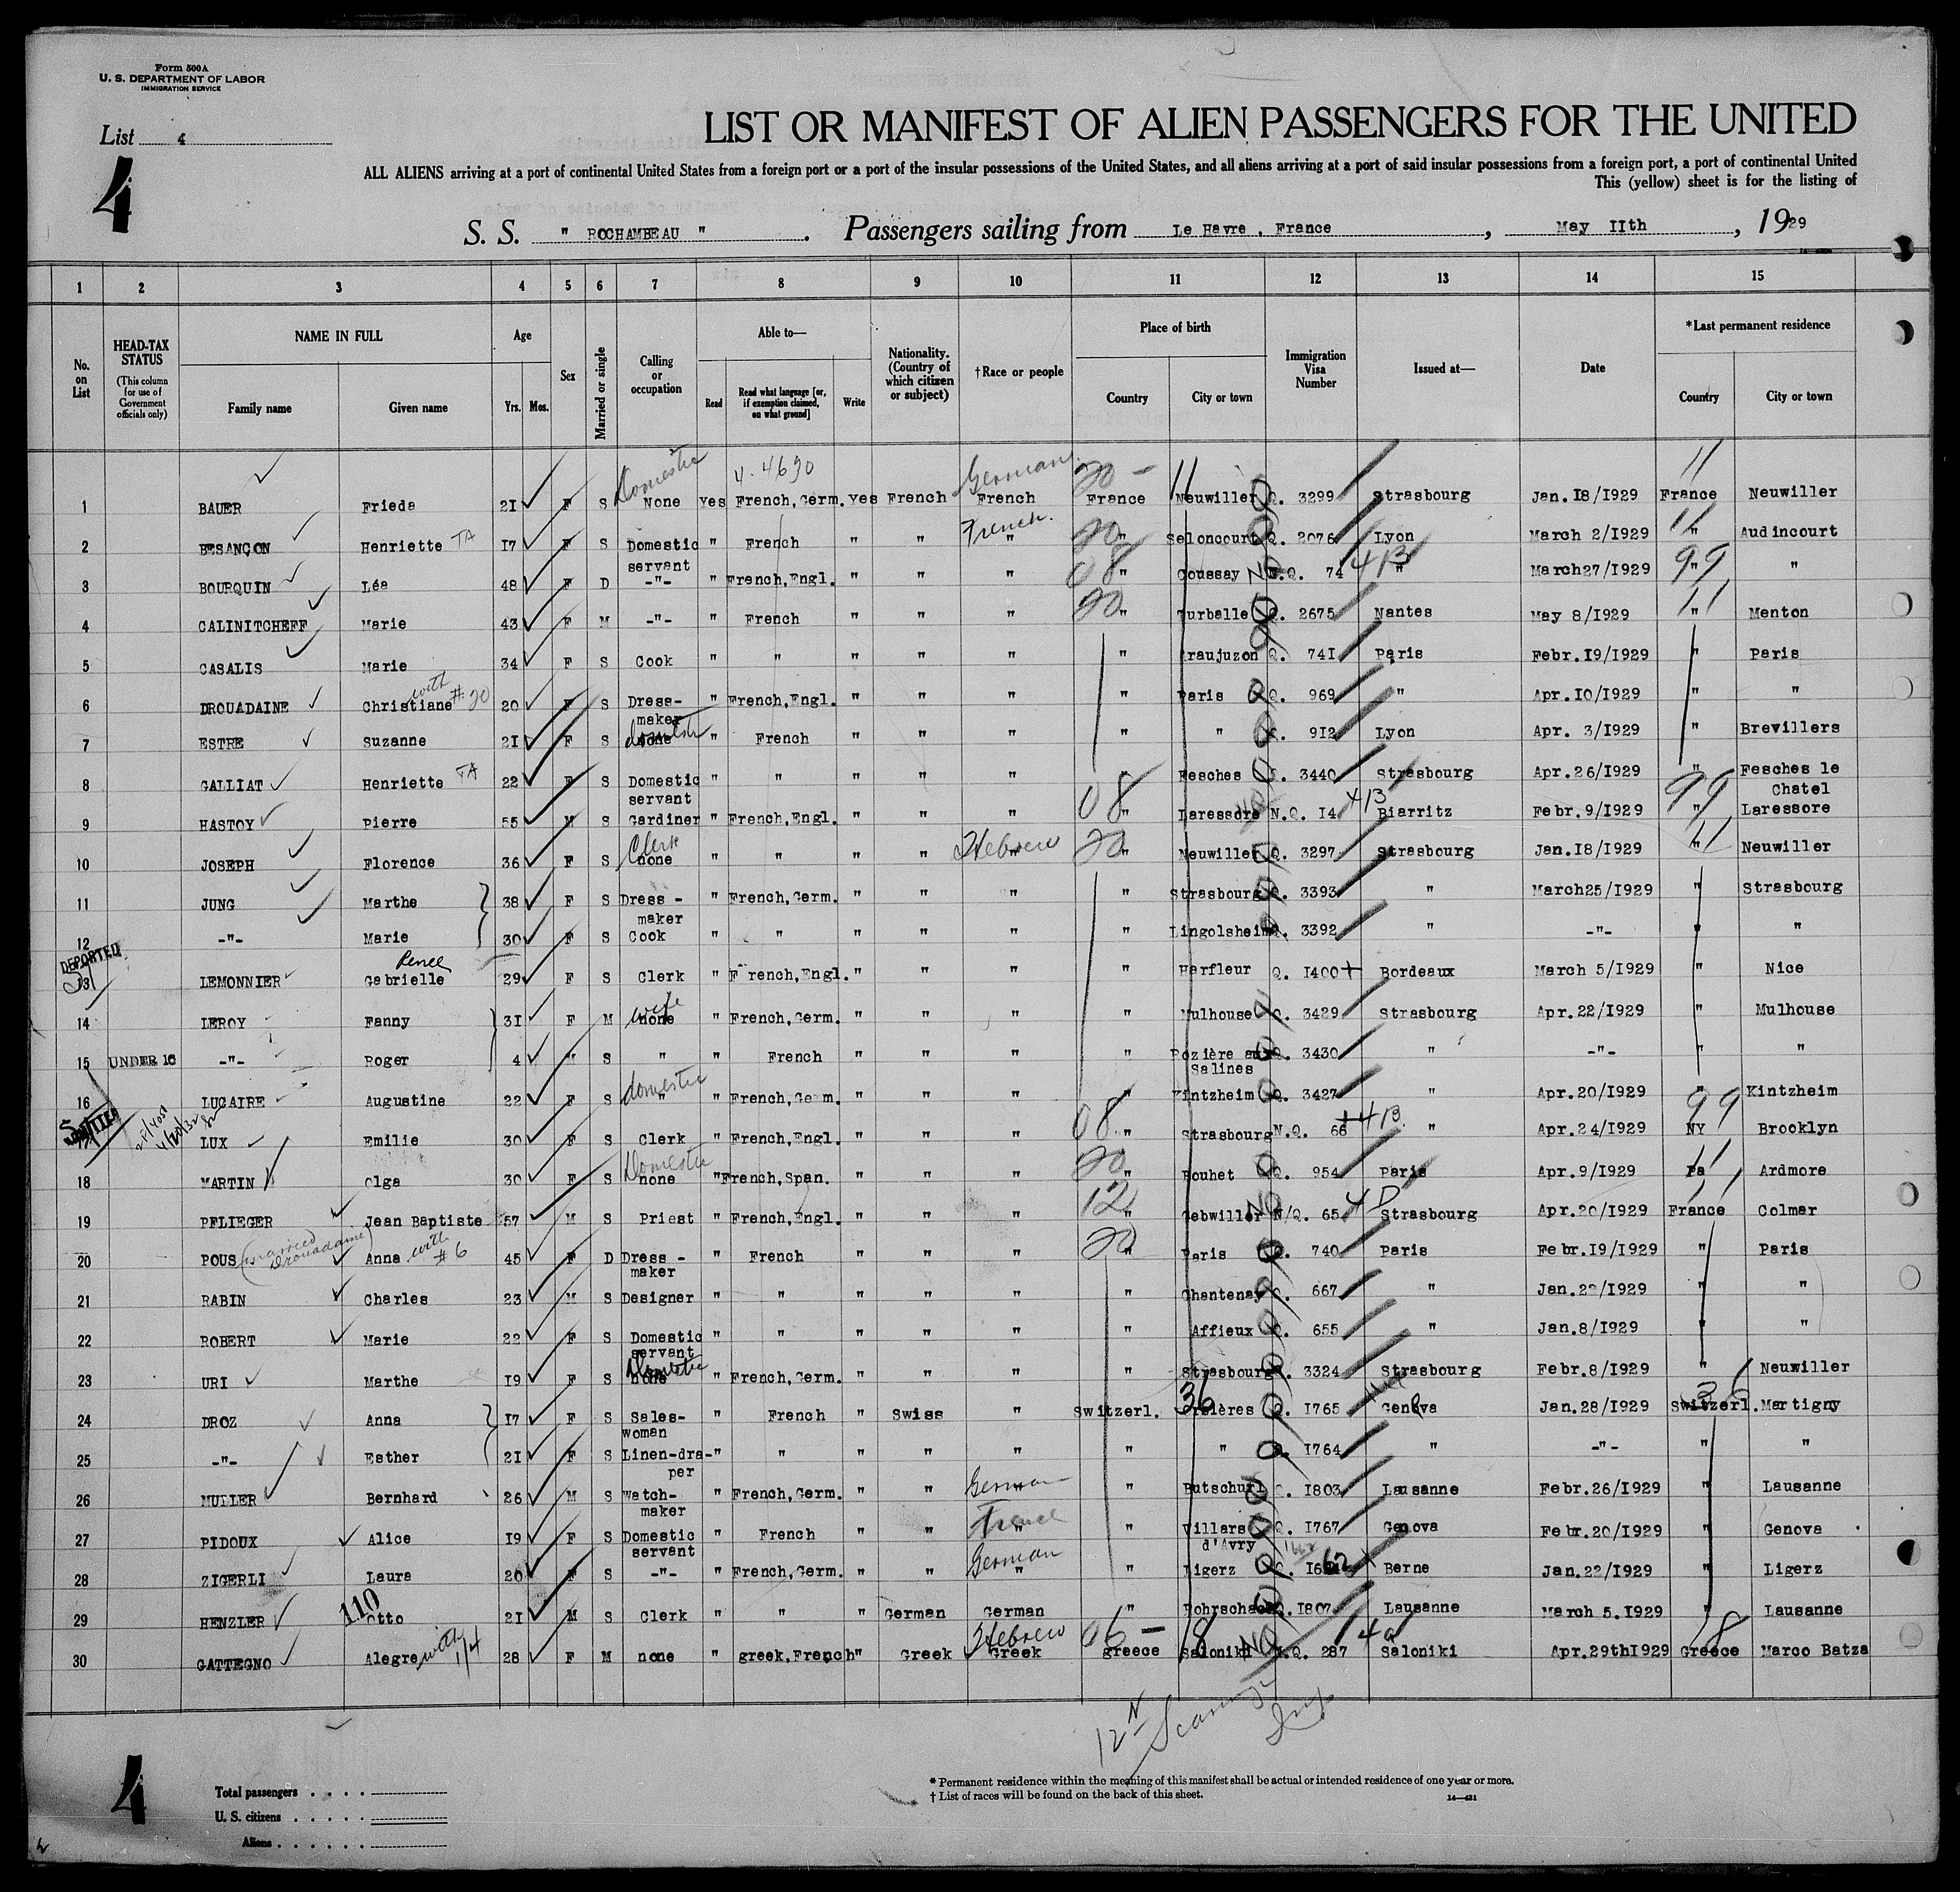 Form 500 A
U. S. DEPARTMENT OF LABOR
IMMIGRATION SERVICE
List 4
4
LIST OR MANIFEST OF ALIEN PASSENGERS FOR THE UNITED
ALL ALIENS arriving at a port of continental United States from a foreign port or a port of the insular possessions of the United States, and all aliens arriving at a port of said insular possessions from a foreign port, a port of continental United
This (yellow) sheet is for the listing of
S. S. " ROCHAMBEAU " . Passengers sailing from Le Havre , France , May IIth , 1929
1 2 3 4 5 6 7 8 9 10 11 12 13 14 15
No. on List
HEAD-TAX STATUS (This column for use of Government officials only)
NAME IN FULL
Family name Given name
Age
Yrs. Mos.
Sex
Married or single
Calling or occupation
Able to—
Read
Read what language [or, if exemption claimed, on what ground]
Write
Nationality. (Country of which citizen or subject)
†Race or people
Place of birth
Country City or town
Immigration Visa Number
Issued at—
Date
*Last permanent residence
Country City or town
Domestic 4.4630 German 20 - 11 11
1 BAUER Frieda 2I F S None Yes French,Germ. Yes French French France Neuwiller Q. 3299 Strasbourg Jan.I8/I929 France Neuwiller
2 BESANÇON Henriette TA I7 F S Domestic servant " French " " " French. 20 " Seloncourt Q. 2076 Lyon March 2/I929 11 " Audincourt
3 BOURQUIN Léa 48 F D -"- " French,Engl. " " " 08 " Coussay N.Q. 74 413 " March27/I929 99 " "
4 CALINITCHEFF Marie 43 F M -"- " French " " " 20 " Turballe Q. 2675 Nantes May 8/I929 11 " Menton
5 CASALIS Marie 34 F S Cook " " " " " " Araujuzon Q. 74I Paris Febr.I9/I929 " Paris
6 DROUADAINE Christiane with #20 20 F S Dress-maker " French,Engl. " " " " Paris Q. 969 " Apr.I0/I929 " "
7 ESTRE Suzanne 2I F S none domestic " French " " " " " Q. 9I2 Lyon Apr. 3/I929 " Brevillers
8 GALLIAT Henriette TA 22 F S Domestic servant " " " " " " Fesches Q. 3440 Strasbourg Apr.26/I929 " Fesches le Chatel
9 HASTOY Pierre 55 M S Gardiner " French,Engl. " " " 08 " Laressore N.Q. I4 413 Biarritz Febr.9/I929 99 Laressore
10 JOSEPH Florence 36 F S none Clerk " " " " " Hebrew 20 " Neuwiller Q. 3297 Strasbourg Jan.I8/I929 11 " Neuwiller
11 JUNG Marthe 38 F S Dress - maker " French,Germ. " " " " Strasbourg Q. 3393 " March25/I929 " Strasbourg
12 -"- Marie 30 F S Cook " " " " " " Lingolsheim Q. 3392 " -"- " "
DEPORTED
13 LEMONNIER Renee Gabrielle 29 F S Clerk " French,Engl. " " " " Harfleur Q. I400 Bordeaux March 5/I929 " Nice
14 LEROY Fanny 3I F M none wife " French,Germ. " " " " Mulhouse Q. 3429 Strasbourg Apr.22/I929 " Mulhouse
15 UNDER 16 -"- Roger 4 " S " " French " " " " Rozière aux Salines Q. 3430 " -"- " "
16 LUCAIRE Augustine 22 F S " domestic " French,Germ. " " " " Kintzheim Q. 3427 " Apr.20/I929 " Kintzheim
LUX Emilie 30 F S Clerk " French,Engl. " " " 08 " Strasbourg N.Q. 66 413 " Apr.24/I929 99 NY Brooklyn
18 MARTIN Olga 30 F S none Domestic " French,Span. " " " 20 " Bouhet Q. 954 Paris Apr.9/I929 11 Pa Ardmore
19 PFLIEGER Jean Baptiste 57 M S Priest " French,Engl. " " " 12 " Gebwiller N/Q. 65 4D Strasbourg Apr.20/I929 France Colmar
20 POUS (married Drouadaine) Anna with #6 45 F D Dress - maker " French " " " 20 " Paris Q. 740 Paris Febr.I9/I929 " Paris
21 RABIN Charles 23 M S Designer " " " " " " Chantenay Q. 667 " Jan.22/I929 " "
22 ROBERT Marie 22 F S Domestic servant " " " " " " Affieux Q. 655 " Jan.8/I929 " "
23 URI Marthe I9 F S none Domestic " French,Germ. " " " " Strasbourg Q. 3324 Strasbourg Febr.8/I929 " Neuwiller
24 DROZ Anna I7 F S Sales-woman " French " Swiss " Switzerl. 36 Q. I765 Geneva Jan.28/I929 Switzerl. Martigny
25 -"- Esther 2I F S Linen-dra-per " " " " " " " Q. I764 " -"- " "
26 MULLER Bernhard 26 M S Watch-maker " French,Germ. " " " German " Butschuri Q. I803 Lausanne Febr.26/I929 " Lausanne
27 PIDOUX Alice I9 F S Domestic servant " French " " " French " Villars d'Avry Q. I767 Genova Febr.20/I929 " Genova
28 ZIGERLI Laura 20 F S -"- " French,Germ. " " " German " Ligerz Q. 62 Berne Jan.22/I929 " Ligerz
29 HENZLER 110 Otto 2I M S Clerk " " " German German " Rohrschach Q.I807 Lausanne March 5.I929 " Lausanne
30 GATTEGNO Alegre with 1/4 28 F M none " greek,French " Greek Greek Hebrew 06 - greece 18 Saloniki N.Q. 287 Saloniki Apr.29thI929 Greece Marco Batza
12 N
4
Total passengers . . . .
U. S. citizens . . . . .
Aliens . . . . . .
* Permanent residence within the meaning of this manifest shall be actual or intended residence of one year or more.
† List of races will be found on the back of this sheet.
14—431